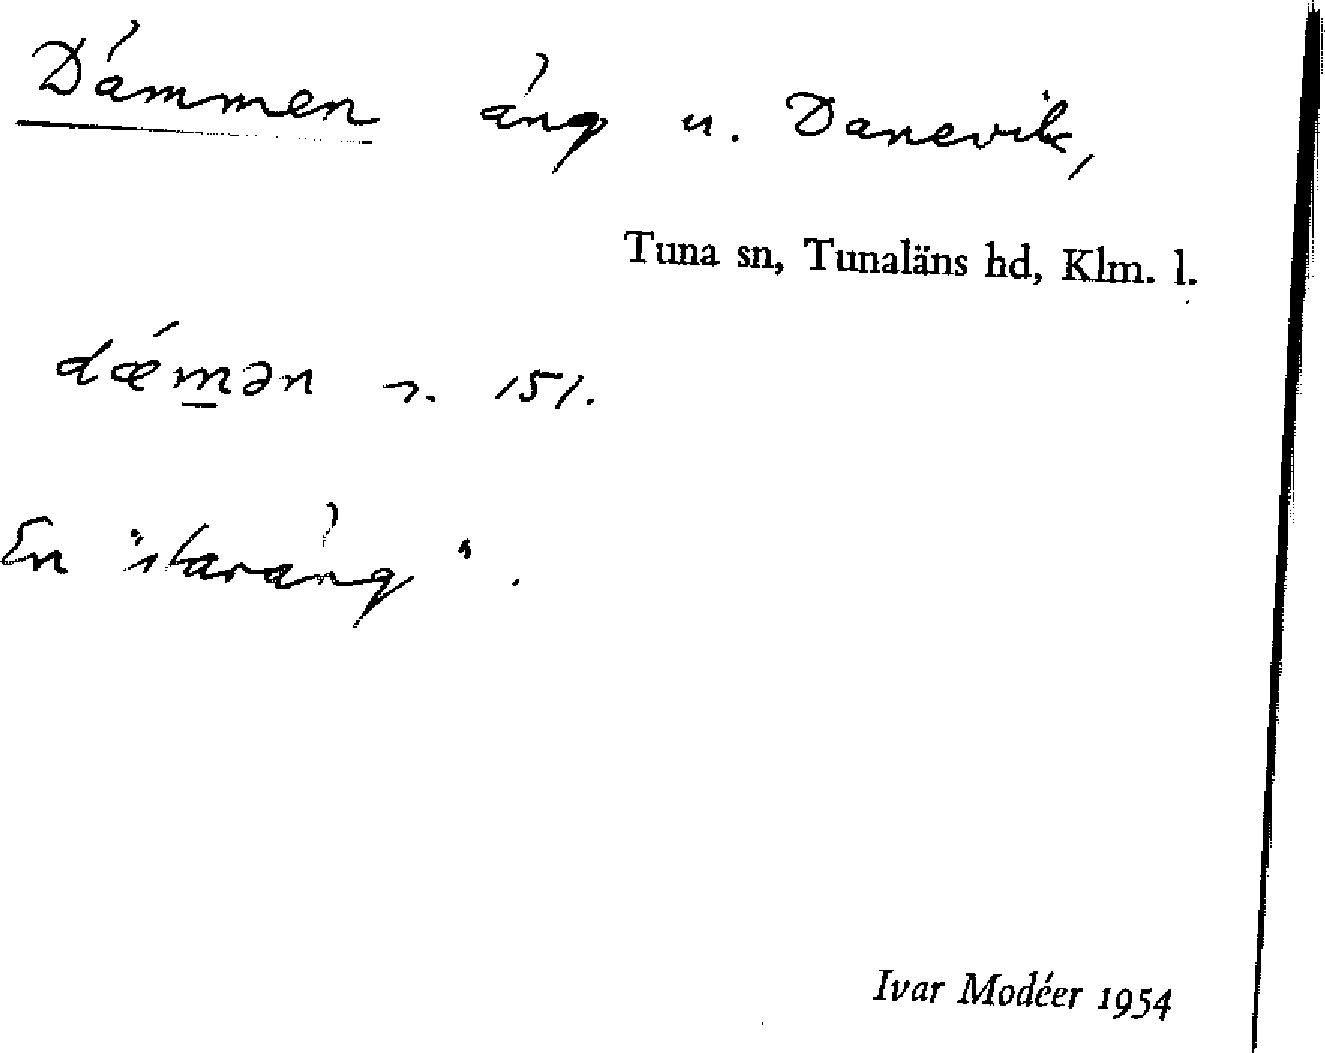 Dämmen äng u. Danevik,
Tuna sn, Tunaläns hd, Klm. l.
dǽm̲ən 151.
En "staräng".
Ivar Modéer 1954